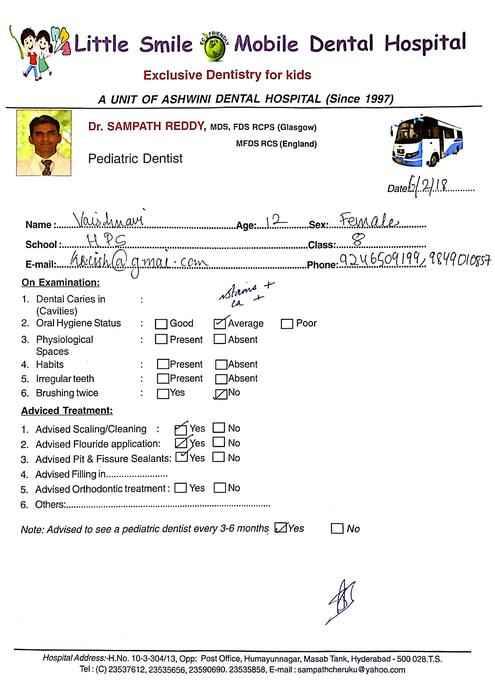 Little Smile Mobile Dental Hospital
Exclusive Dentistry for kids
A UNIT OF ASHWINI DENTAL HOSPITAL (Since 1997)
Dr. SAMPATH REDDY, MDS, FDS RCPS (Glasgow)
MFDS RCS (England)
Pediatric Dentist
Date 6/2/18
Name : Vaishnavi Age: 12 Sex: Female
School : HPS Class: 8
E-mail: @gmai.com Phone: 9246509199, 9849010857
On Examination:
stains +
ca +
1. Dental Caries in :
(Cavities)
2. Oral Hygiene Status : Good Average Poor
3. Physiological : Present Absent
Spaces
4. Habits : Present Absent
5. Irregular teeth : Present Absent
6. Brushing twice : Yes No
Adviced Treatment:
1. Advised Scaling/Cleaning : Yes No
2. Advised Flouride application: Yes No
3. Advised Pit & Fissure Sealants: Yes No
4. Advised Filling in...................
5. Advised Orthodontic treatment : Yes No
6. Others:...................
Note: Advised to see a pediatric dentist every 3-6 months Yes No
Hospital Address:-H.No. 10-3-304/13, Opp: Post Office, Humayunnagar, Masab Tank, Hyderabad - 500 028.T.S.
Tel : (C) 23537612, 23535656, 23590690. 23535858, E-mail : sampathcheruku@yahoo.com